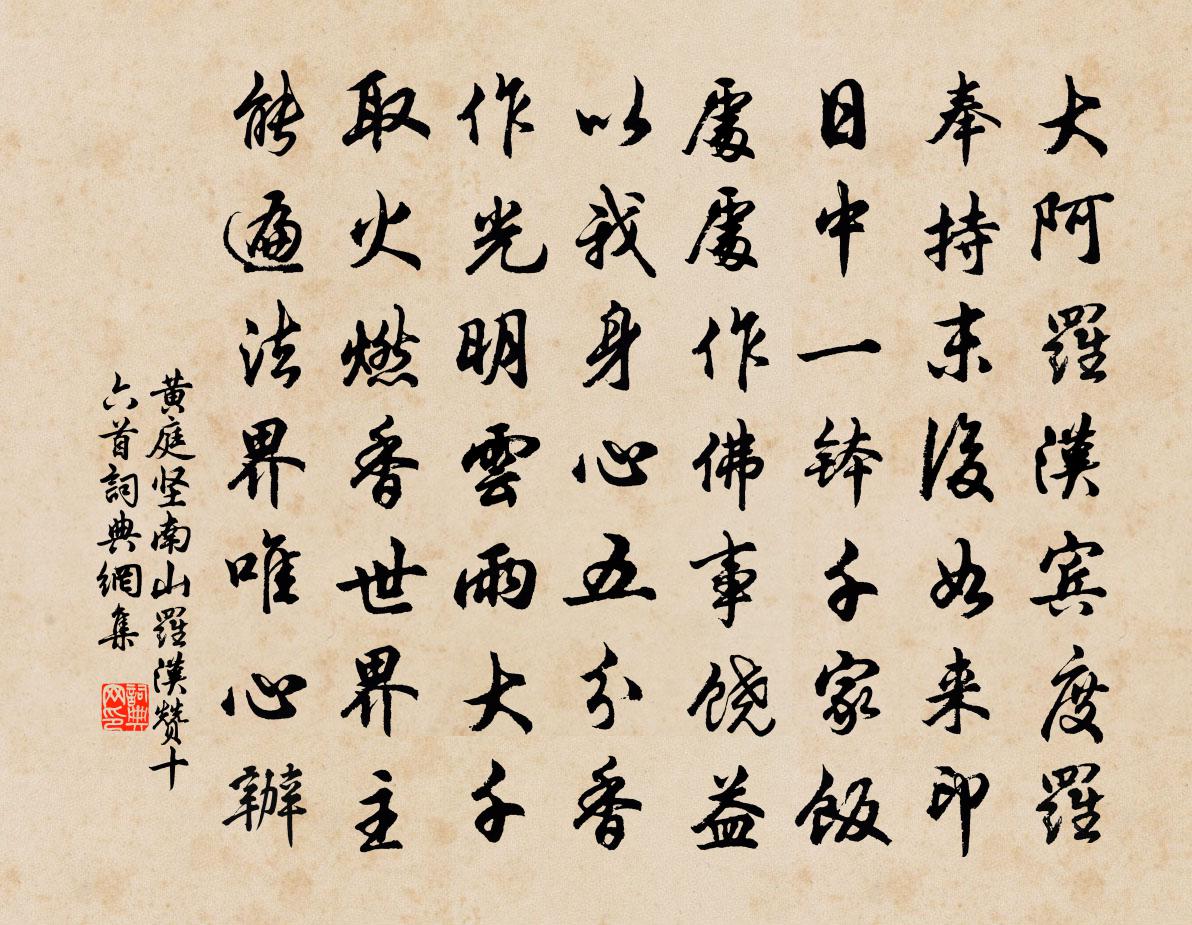 大阿羅漢宾度羅
奉持末後如来印
日中一钵千家飯
處處作佛事饶益
以我身心五分香
作光明雲雨大千
取火燃香世界主
能遍法界唯心辦
黄庭坚南山羅漢赞十
六首詞典網集
詞典网印